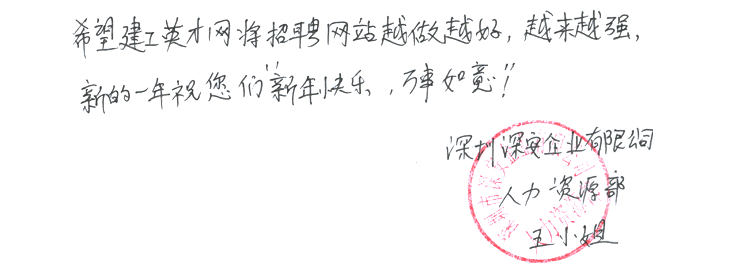 希望建工英才网将招聘网站越做越好，越来越强，
新的一年祝您们“新年快乐，万事如意”！
深圳深安企业有限公司
人力资源部
王小姐